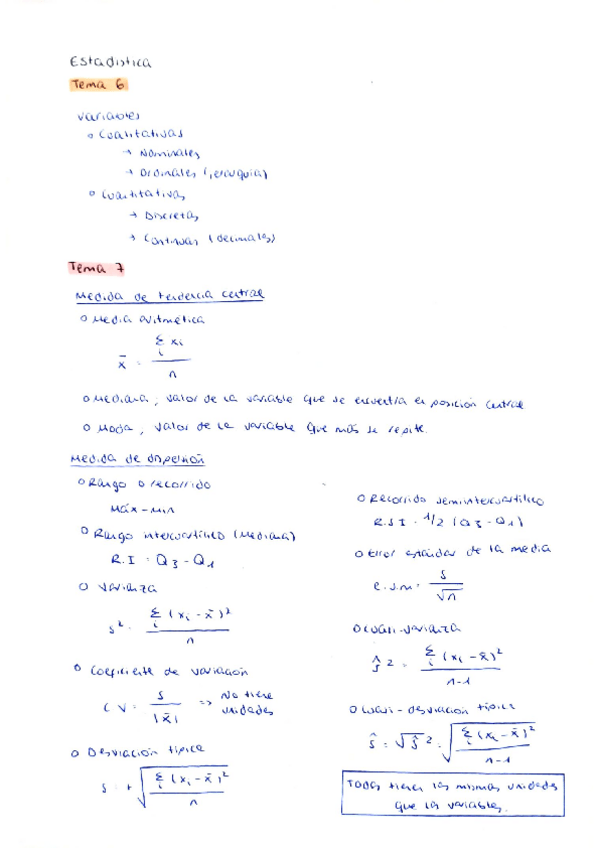 Estadística
Tema 6
Variables
o Cualitativas
→ Nominales
→ Ordinales (jerarquía)
o Cuantitativas
→ Discretas
→ Continuas (decimales)
Tema 7
Medida de tendencia central
o Media aritmética
x̄ = Σᵢ xᵢ / n
o Mediana, valor de la variable que se encuentra en posición central
o Moda, valor de la variable que más se repite.
Medida de dispersión
o Rango o recorrido
Máx - Min
o Rango intercuartílico (Mediana)
R.I = Q3 - Q1
o Varianza
s² = Σᵢ (xᵢ - x̄)² / n
o Coeficiente de variación
CV = s / |x̄| => No tiene unidades
o Desviación típica
s = + √( Σᵢ (xᵢ - x̄)² / n )
o Recorrido semiintercuartílico
R.S.I = 1/2 (Q3 - Q1)
o Error estándar de la media
e.s.m = s / √n
o Cuasi-varianza
ŝ² = Σᵢ (xᵢ - x̄)² / n-1
o Cuasi-desviación típica
ŝ = √ŝ² = √( Σᵢ (xᵢ - x̄)² / n-1 )
Todas tienen las mismas unidades
que las variables.